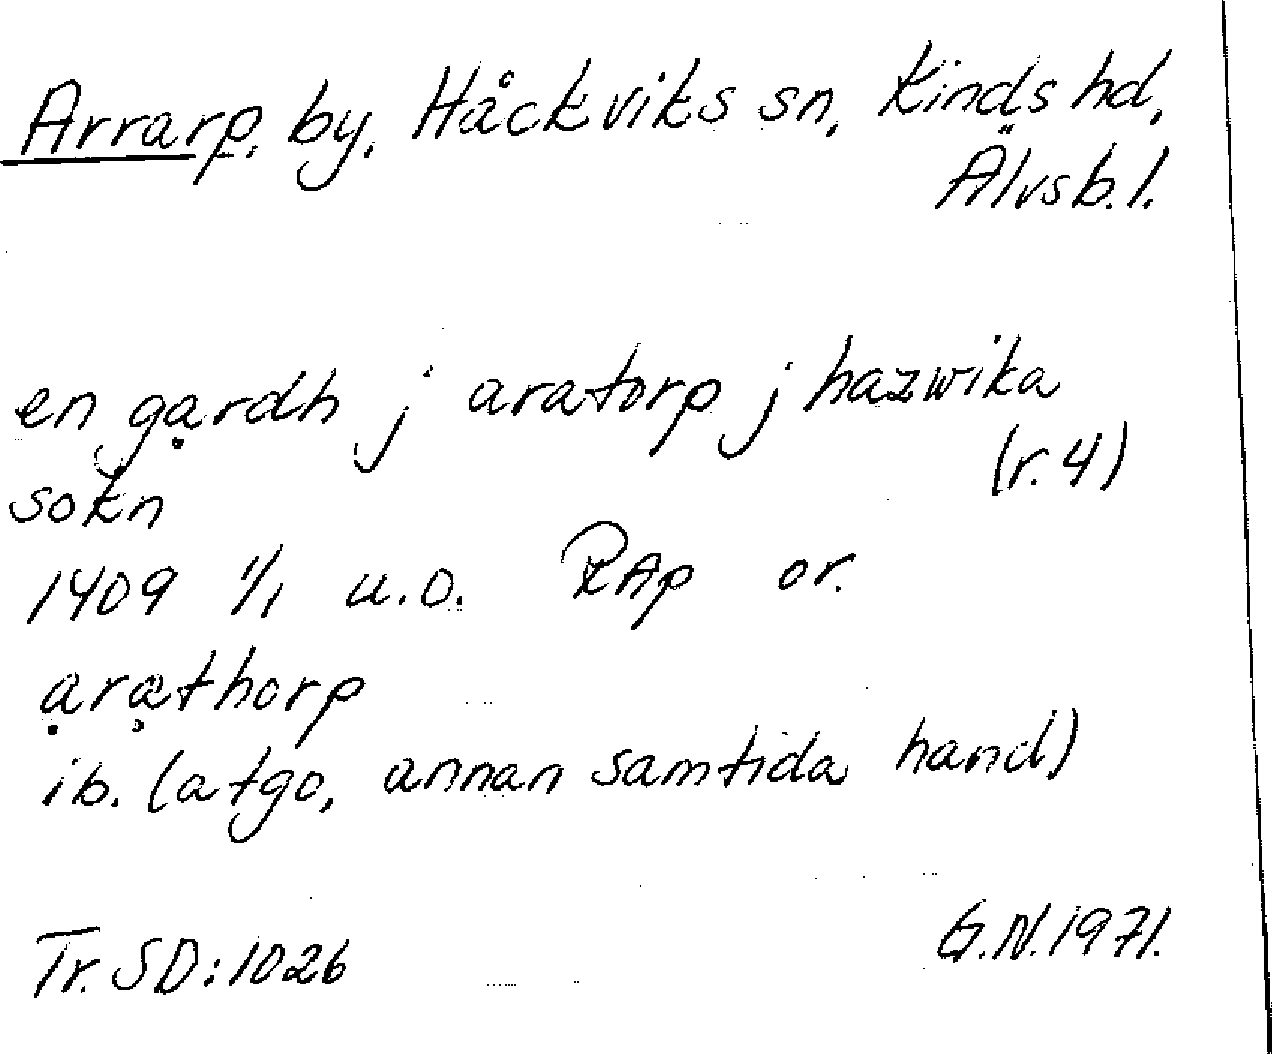 Arrarp, by, Håckviks sn, Kinds hd,
Älvsb. l.
en gardh j aratorp j hazwika
sokn (r. 4)
1409 1/1 u.o. RAp or.
arathorp
ib. (atgo, annan samtida hand)
Tr. SD: 1026 G.N. 1971.